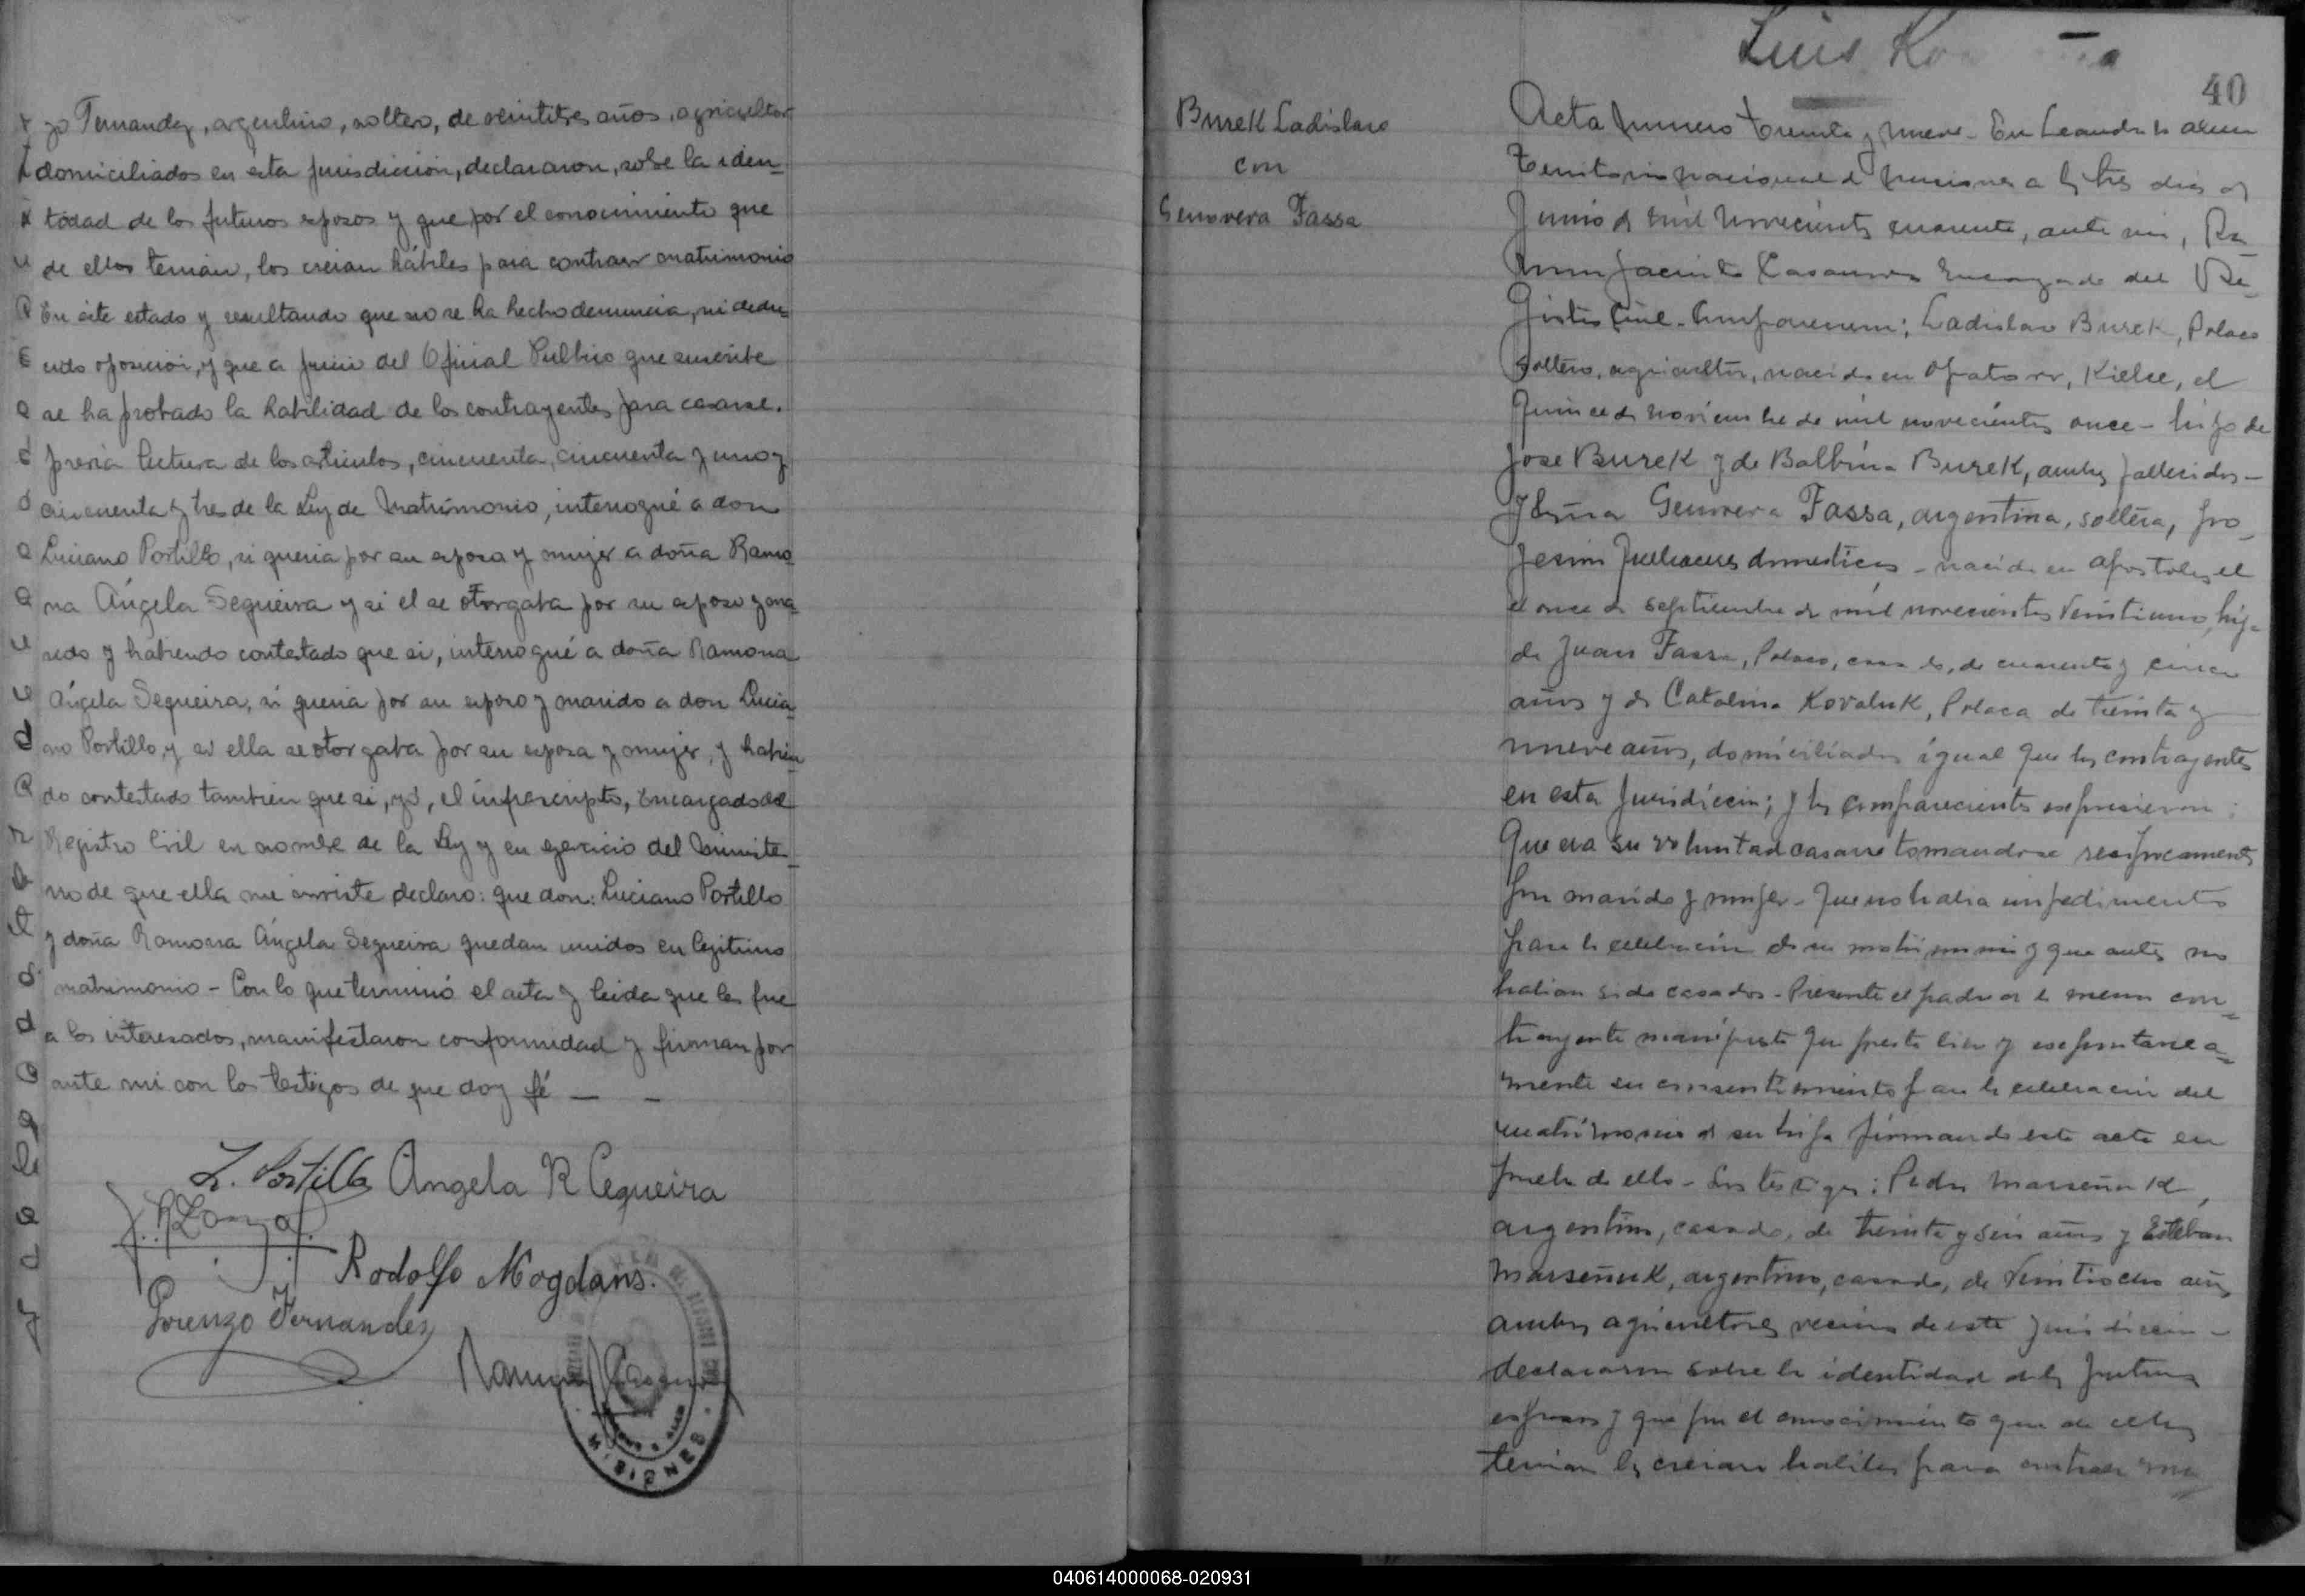 zo Fernandez, argentino, soltero, de veintitres años, agricultor
domiciliados en esta jurisdiccion, declararon, sobre la iden-
tidad de los futuros esposos y que por el conocimiento que
de ellos tenian, los creian hábiles para contraer matrimonio
En este estado y resultando que no se ha hecho denuncia, ni dedu-
cido oposición, y que a juicio del Oficial Publico que suscribe
se ha probado la habilidad de los contrayentes para casarse.
previa lectura de los articulos, cincuenta, cincuenta y uno y
cincuenta y tres de la Ley de Matrimonio, interrogué a don
Luciano Portillo, si queria por su esposa y mujer a doña Ramo-
na Ángela Sequeira y si el se otorgaba por su esposo y ma-
rido y habiendo contestado que si, interrogué a doña Ramona
Ángela Sequeira, si queria por su esposo y marido a don Lucia-
no Portillo, y si ella se otorgaba por su esposa y mujer, y habien-
do contestado tambien que si, yo, el infrascripto, Encargado del
Registro Civil en nombre de la Ley y en ejercicio del Ministe-
rio de que ella me inviste declaro: que don: Luciano Portillo
y doña Ramona Ángela Sequeira quedan unidos en legitimo
matrimonio - Con lo que terminó el acta y leida que les fue
a los interesados, manifestaron conformidad y firman por
ante mi con los testigos de que doy fé — -
L. Portillo Angela R Cequeira
Rodolfo Mogdans.
Lorenzo Fernandez
MISIONES
Luis
40
Burek Ladislao
con
Genovera Fassa
Acta numero treinta y nueve - En Leandro N Alem
Territorio nacional de Misiones a los tres dias de
Junio de mil novecientos cuarenta, ante mi, Ra-
mon Jacinto Casanova Encargado del Re-
gistro Civil - Comparecieron; Ladislao Burek, Polaco
soltero, agricultor, nacido en Opatow, Kielce, el
quince de noviembre de mil novecientos once - hijo de
Jose Burek y de Balbina Burek, ambos fallecidos -
Y doña Genovera Fassa, argentina, soltera, pro-
fesion quehaceres domesticos - nacida en Apostoles, el
el once de septiembre de mil novecientos veintiuno, hija
de Juan Fassa, Polaco, casado, de cuarenta y cinco
años y de Catalina Kovaluk, Polaca de treinta y
nueve años, domiciliados igual que los contrayentes
en esta jurisdiccion; y los comparecientes expresaron:
Que era su voluntad casarse tomandose reciprocamente
por marido y mujer - Que no habia impedimento
para la celebracion de su matrimonio y que antes no
habian sido casados - Presente el padre de la menor con-
trayente manifesto que presta libre y espontanea-
mente su consentimiento para la celebracion del
matrimonio de su hija firmando este acta en
prueba de ello - Los testigos: Pedro Marseñuk,
argentino, casado, de treinta y seis años y Estéban
Marseñuk, argentino, casado, de veintiocho años
ambos agricultores vecinos de esta jurisdiccion -
declararon sobre la identidad de los futuros
esposos y que por el conocimiento que de ellos
tenian los creian habiles para contraer ma
040614000068-020931